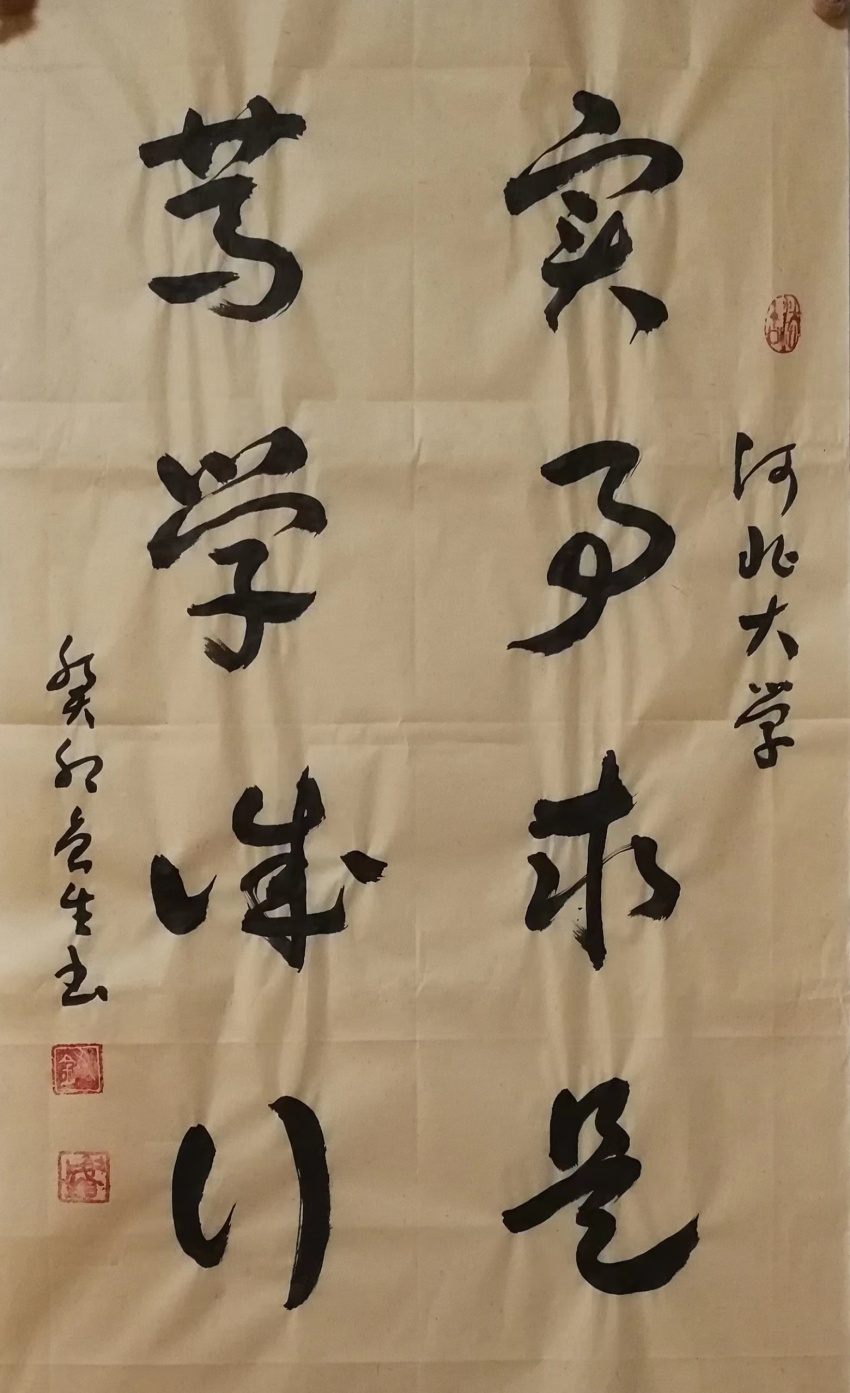 河北大学
实事求是
笃学诚行
癸卯生书